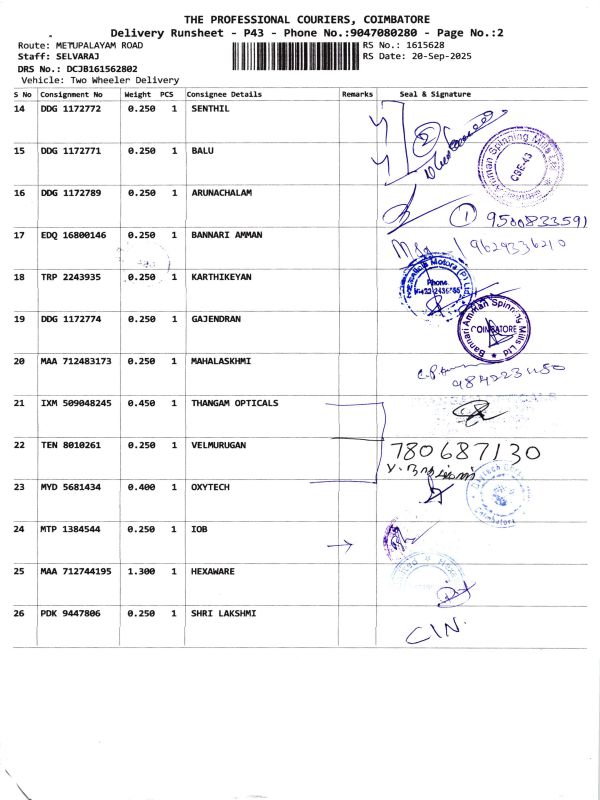 THE PROFESSIONAL COURIERS, COIMBATORE
Delivery Runsheet - P43 - Phone No.:9047080280 - Page No.:2
Route: METUPALAYAM ROAD
RS No.: 1615628
Staff: SELVARAJ
RS Date: 20-Sep-2025
DRS No.: DCJB161562802
Vehicle: Two Wheeler Delivery
S No Consignment No Weight PCS Consignee Details Remarks Seal & Signature
14 DDG 1172772 0.250 1 SENTHIL
15 DDG 1172771 0.250 1 BALU
Bannari Amman Spinning Mills Ltd
CBE-43
16 DDG 1172789 0.250 1 ARUNACHALAM
1 9500833591
17 EDQ 16800146 0.250 1 BANNARI AMMAN
9629336210
18 TRP 2243935 0.250 1 KARTHIKEYAN
Motors (P) Ltd
Phone
19 DDG 1172774 0.250 1 GAJENDRAN
Bannari Amman Spinning Mills Ltd
COIMBATORE
20 MAA 712483173 0.250 1 MAHALASKHMI
21 IXM 509048245 0.450 1 THANGAM OPTICALS
22 TEN 8010261 0.250 1 VELMURUGAN
780687130
23 MYD 5681434 0.400 1 OXYTECH
Coimbatore
24 MTP 1384544 0.250 1 IOB
25 MAA 712744195 1.300 1 HEXAWARE
26 PDK 9447806 0.250 1 SHRI LAKSHMI
CIN.